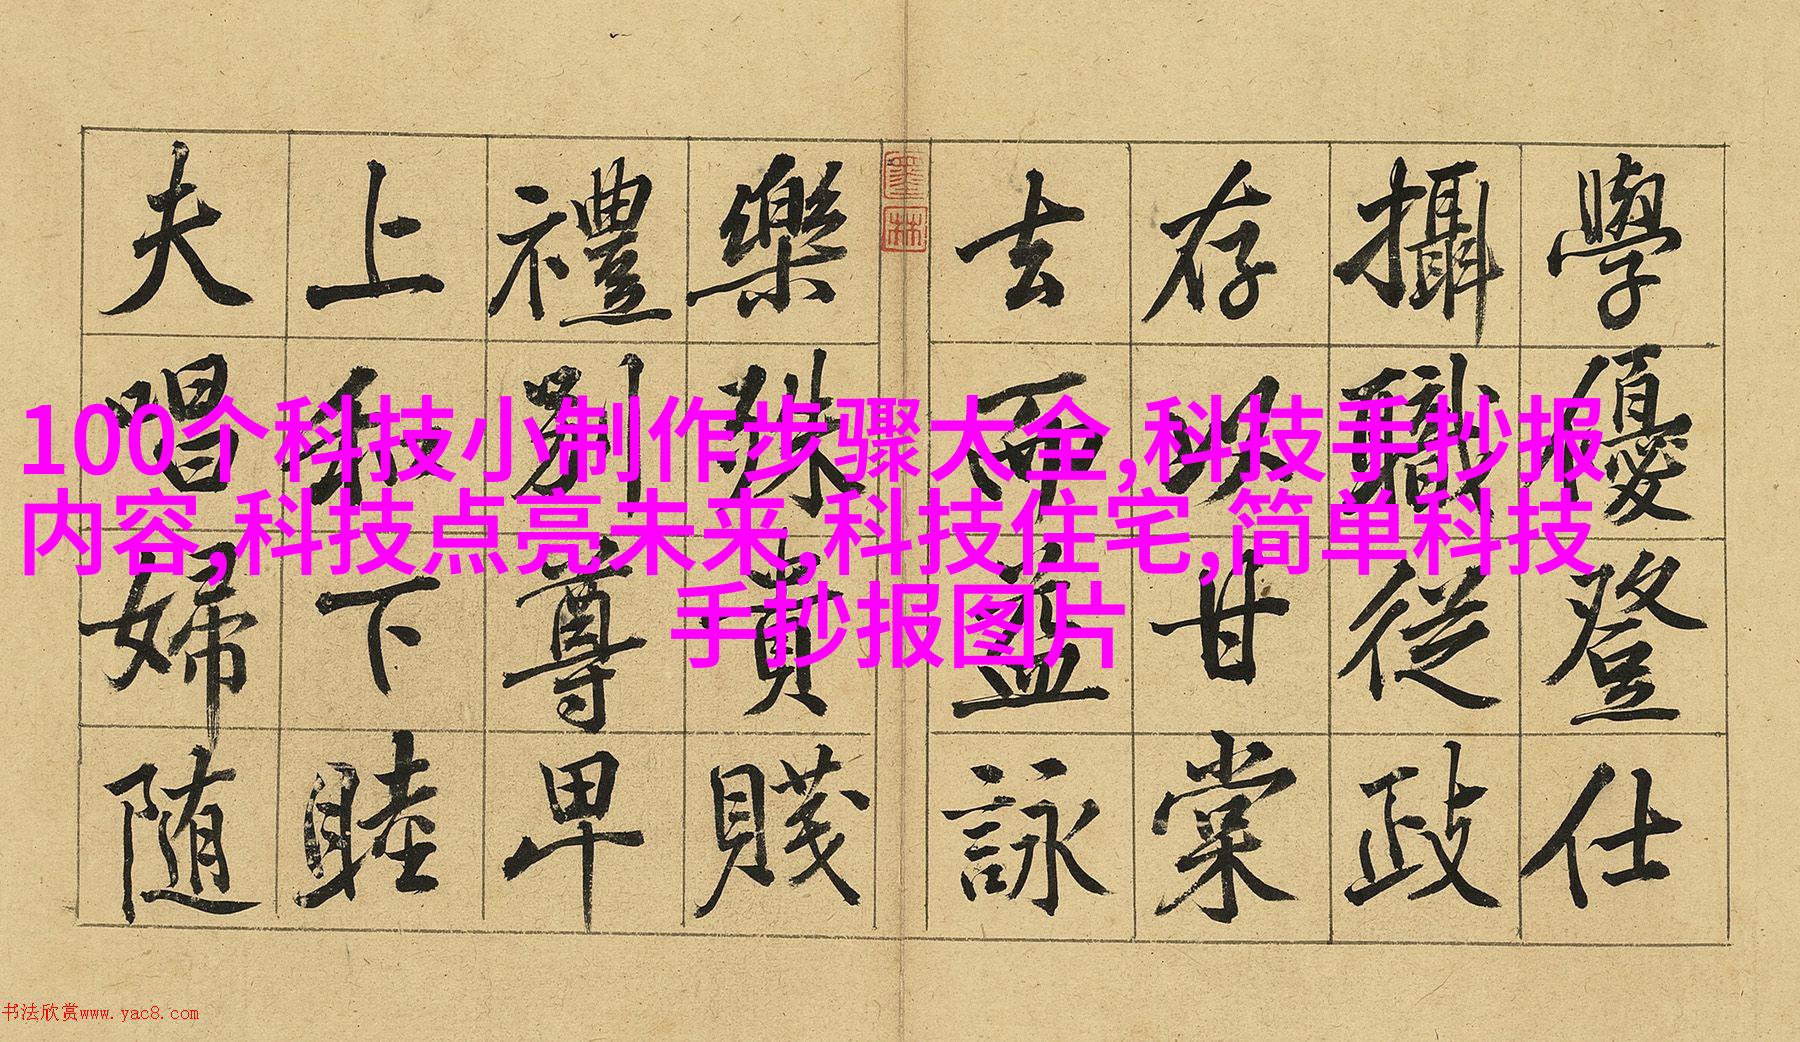 學優登仕
攝職從政
存以甘棠
去而益詠
墨林
樂殊貴賤
禮別尊卑
上和下睦
夫唱婦随
100个科技小制作步骤大全,科技手抄报
内容,科技点亮未来,科技住宅,简单科技
手抄报图片
书法欣赏www.yac8.com